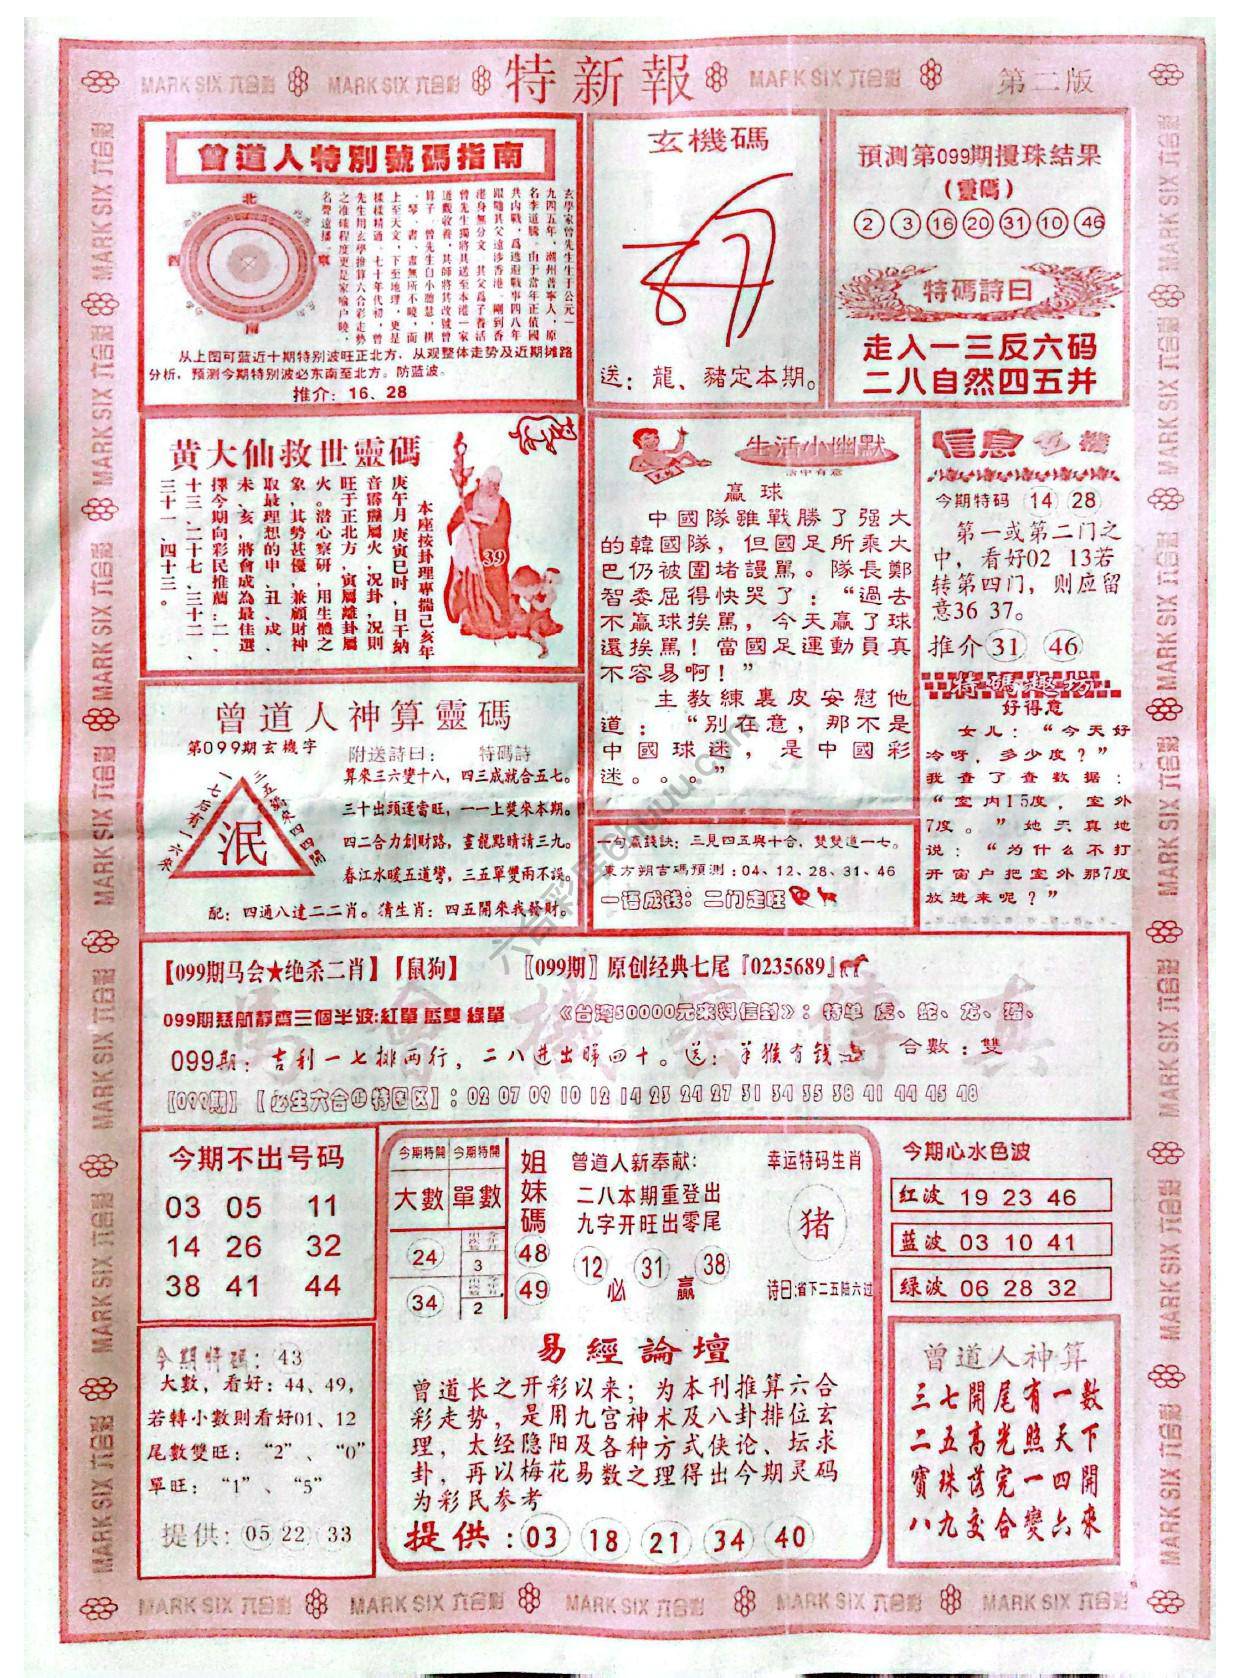 MARK SIX 六合彩
MARK SIX 六合彩
特新報
MARK SIX 六合彩
第二版
曾道人特別號碼指南
北
西
東
南
玄學家曾先生生于公元一
九四五年，潮州普寧人，原
名李道騰。由于當年正值國
共内戰，爲逃避戰事四八年
跟隨其父遠涉香港，剛到香
港身無分文，其父爲了養活
曾先生獨將其送至本港一家
道觀收養，其師將其改號曾
算子，曾先生自小聰慧，棋
、琴、書、畫無所不曉，而
上至天文，下至地理，更是
樣樣精通。七十年代初，曾
先生用玄學推算六合彩走勢
之准確程度更是家喻户曉，
名聲遠播。
从上图可蓝近十期特别波旺正北方，从观整体走势及近期摊路
分析，预测今期特别波必东南至北方。防蓝波。
推介：16、28
玄機碼
送：龍、豬定本期。
預測第099期攪珠結果
(靈碼)
2 3 16 20 31 10 46
特碼詩曰
走入一三反六码
二八自然四五并
黄大仙救世靈碼
本座按卦理專攜己亥年
庚午月庚寅巳时，日干納
音霹靂屬火，况卦，况则
旺于正北方，寅屬離卦屬
火。潜心察研，用生體之
象，其勢甚優，兼顧財神
取最理想的申、丑、戌、
未、亥，將會成為最佳選
擇今期向彩民推薦：二、
十三、二十七、三十二、
三十一、四十三。
39
生活小幽默
活中有意
贏球
中國隊雖戰勝了强大
的韓國隊，但國足所乘大
巴仍被圍堵謾罵。隊長鄭
智委屈得快哭了：“過去
不贏球挨罵，今天贏了球
還挨罵！當國足運動員真
不容易啊！”
主教練裏皮安慰他
道：“别在意，那不是
中國球迷，是中國彩
迷。。。”
信息玄機
今期特码 14 28
第一或第二门之
中，看好02 13若
转第四门，则应留
意36 37。
推介 31 46
特碼趣坊
好得意
女儿：“今天好
冷呀，多少度？”
我查了查数据：
“室内15度，室外
7度。”她天真地
说：“为什么不打
开窗户把室外那7度
放进来呢？”
曾道人神算靈碼
第099期玄機字
附送詩曰：
特碼詩
泯
一七后有一六来
算來三六變十八，四三成就合五七。
三十出頭運當旺，一一上獎來本期。
四二合力創財路，畫龍點睛請三九。
春江水暖五道彎，三五單雙兩不誤。
配：四通八達二二肖。猜生肖：四五開來我發财。
一句贏錢訣：三見四五與十合，雙雙道一七。
東方朔吉碼預測：04、12、28、31、46
一语成钱：二门走旺
【099期马会★绝杀二肖】【鼠狗】
〖099期〗原创经典七尾『0235689』
099期慈航靜齋三個半波:紅單 藍雙 綠單
《台湾50000元来料信封》：特单 虎、蛇、龙、猪、
099期：吉利一七排两行，二八进出睇四十。送：羊猴有钱
合數：雙
【099期】【必生六合㊣特围区】：02 07 09 10 12 14 23 24 27 31 34 35 38 41 44 45 48
馬會機密傳真
今期不出号码
03 05 11
14 26 32
38 41 44
今期特碼：43
大數，看好：44、49，
若轉小數則看好01、12
尾數雙旺：“2”、“0”
單旺：“1”、“5”
提供：05 22 33
今期特開
今期特開
大數
單數
24
3
34
2
姐妹碼
48
49
曾道人新奉献：
二八本期重登出
九字开旺出零尾
12 31 38
必 贏
幸运特码生肖
猪
诗曰:省下二五陪六过
易經論壇
曾道长之开彩以来；为本刊推算六合
彩走势，是用九宫神术及八卦排位玄
理，太经隐阳及各种方式侠论、坛求
卦，再以梅花易数之理得出今期灵码
为彩民参考
提供：03 18 21 34 40
今期心水色波
红波 19 23 46
蓝波 03 10 41
绿波 06 28 32
曾道人神算
三七開尾有一數
二五高光照天下
寶珠落完一四開
八九交合變六來
MARK SIX 六合彩
MARK SIX 六合彩
MARK SIX 六合彩
MARK SIX 六合彩
MARK SIX 六合彩